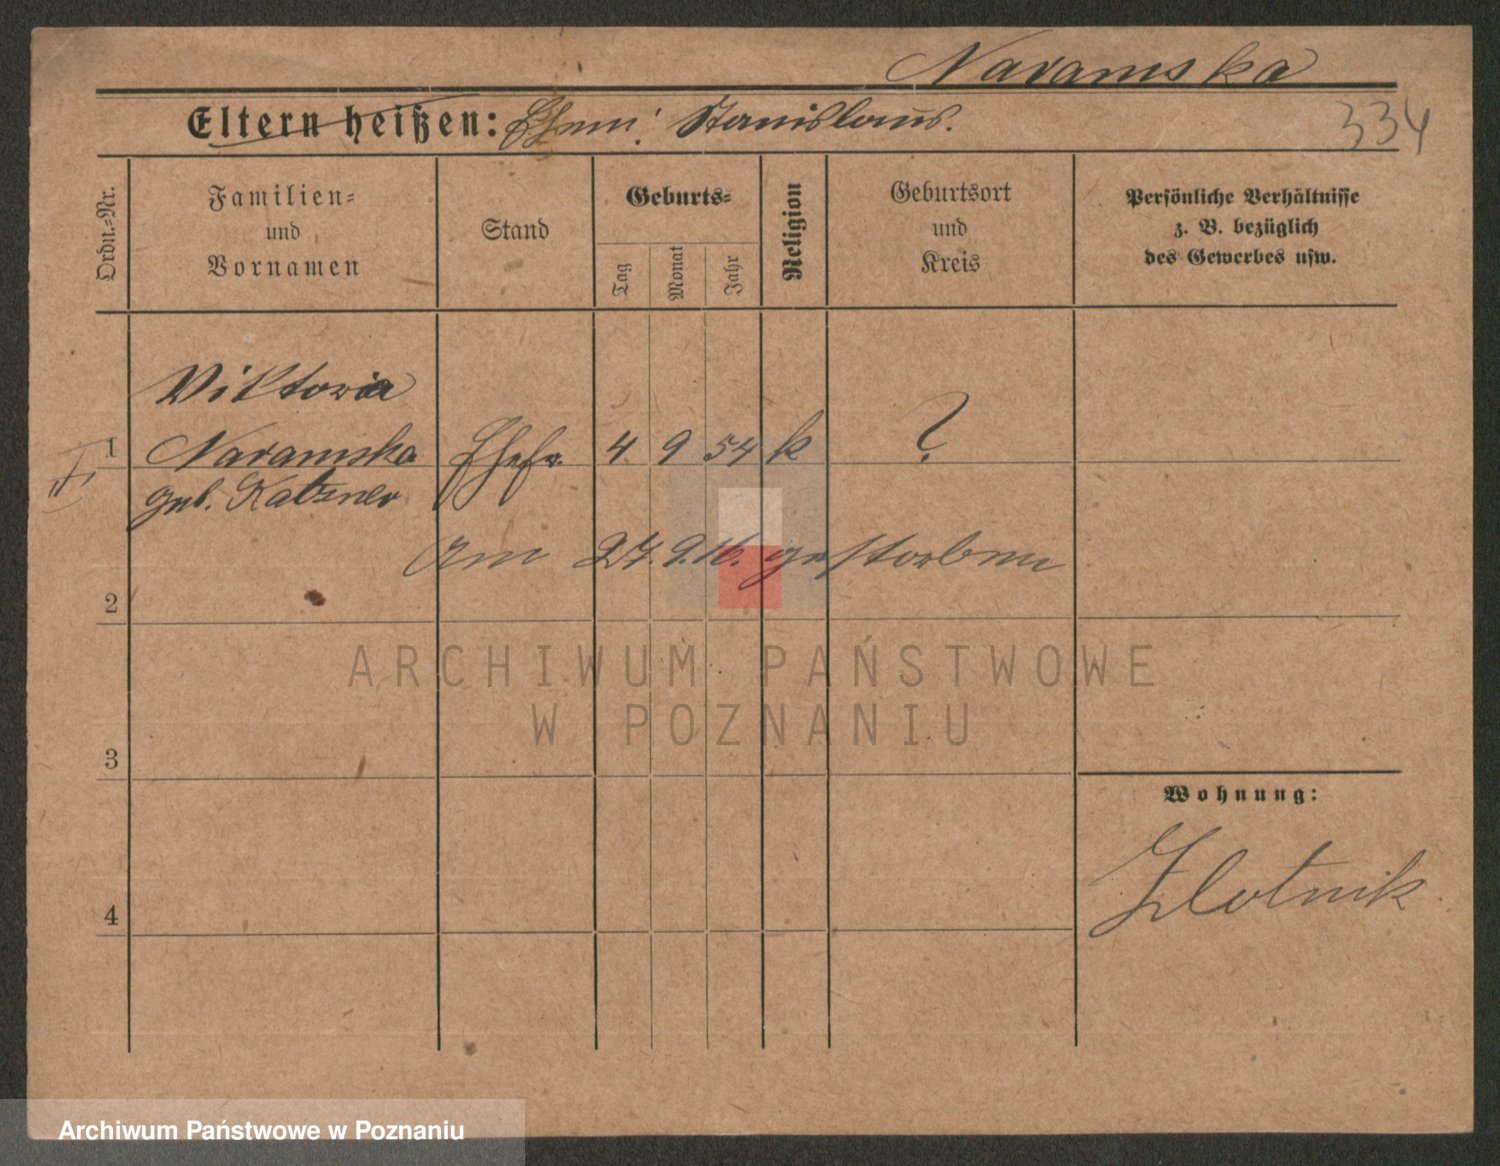 Naramska
Eltern heißen: Ehem: Stanislaus.
334
Ordn.-Nr.
Familien-
und
Vornamen
Stand
Geburts-
Tag
Monat
Jahr
Religion
Geburtsort
und
Kreis
Persönliche Verhältnisse
z. B. bezüglich
des Gewerbes usw.
Viktoria
1 Naramska Ehefr. 4 9 54 k ?
geb. Katzner
am 27.9.16. gestorben
2
ARCHIWUM PAŃSTWOWE
W POZNANIU
3
Wohnung:
Zlotnik
4
Archiwum Państwowe w Poznaniu